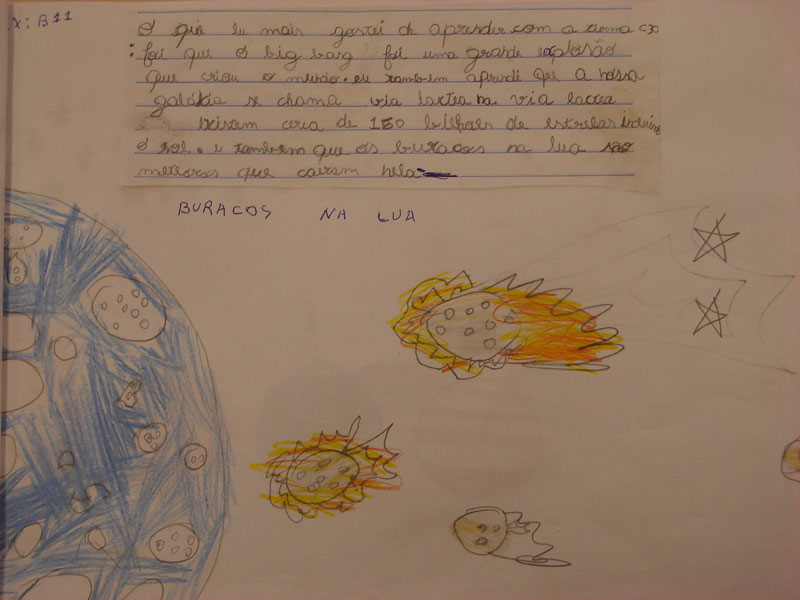 X: B11
O quê eu mais gostei de aprender com a turma C30
foi que o big bang foi uma grande explosão
que criou o mundo. eu também aprendi que a nossa
galákia se chama via lactea na via lactea
existem cerca de 150 bilhões de estrelas
o sol. e também que os buracos na lua são
meteoros que cairam nela
BURACOS NA LUA